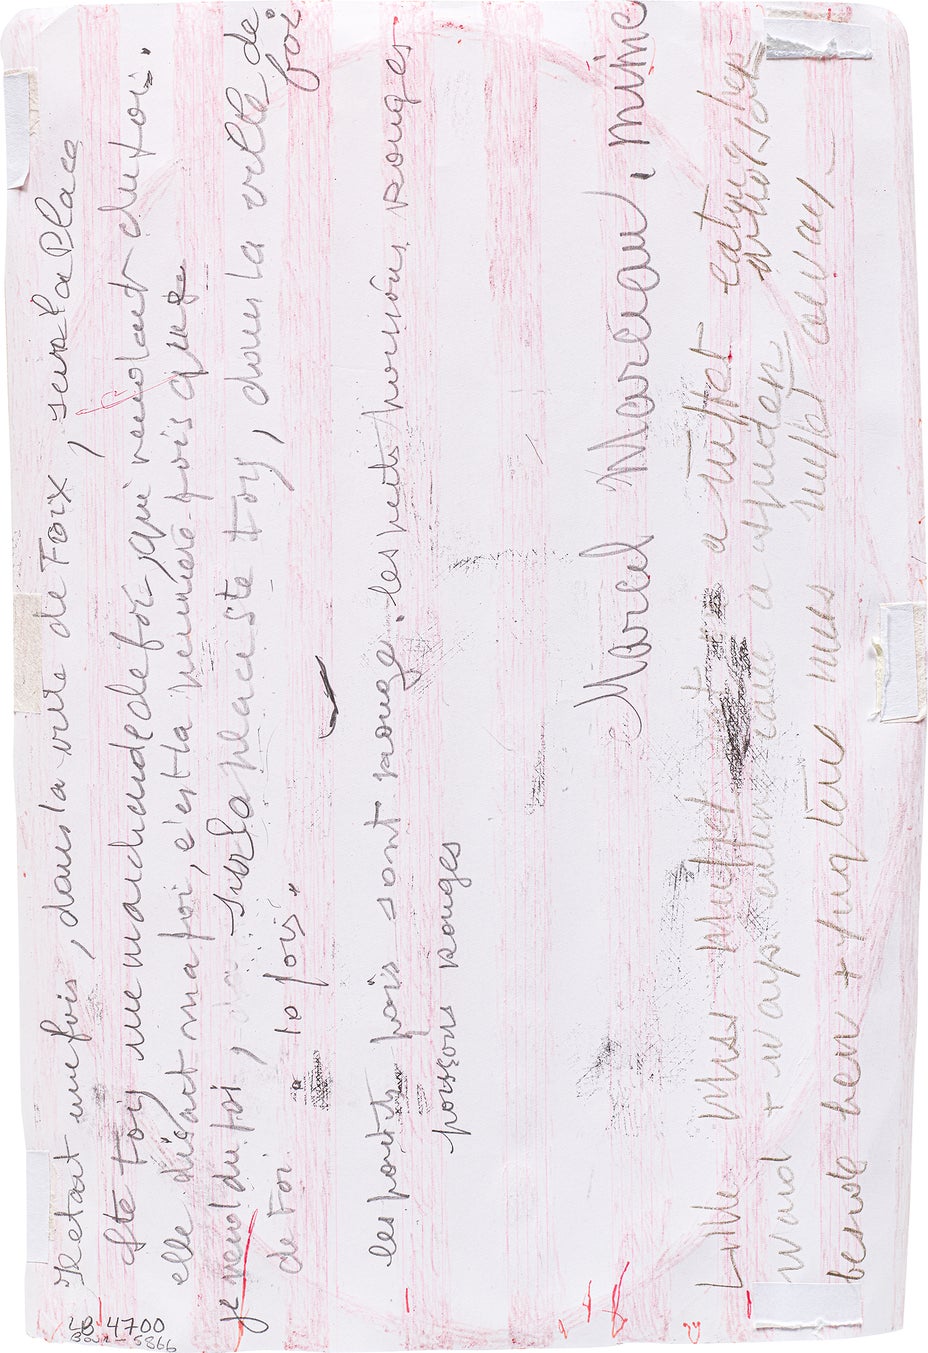 Il etait une fois, dans la ville de Foix, sur la place
Ste Foiy une marchande de foie, qui vendait du foi.
elle disait ma foi, c'est la première fois que
je vend du foi, sur la place ste Foy, dans la ville de
de Foi. 10 fois. foi
les petits pois sont rouge. les petits poissons rouges
poissons rouges
Marcel Marceau, mime
Little Miss Muffet a tuffet eatyng
ward + ways a spider
beside her + muffet away
LB 4700
Bour-5866